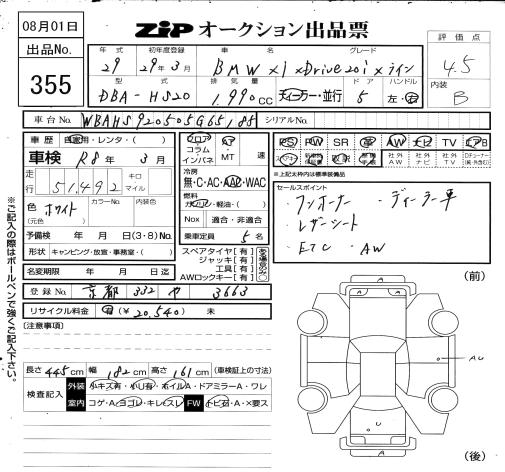 08月01日
ZIP オークション出品票
出品No.
355
年式 初年度登録 車名 グレード
29 29年3月 BMW x1 xDrive20i xライン
型式 排気量 ドア ハンドル
DBA-HS20 1,990cc ディーラー・並行 5 左・右
評価点
4.5
内装
B
車台No. WBAHS920505G65185 シリアルNo.
車歴 自家用・レンタ・( )
車検 R8年 3月
走行 51,492 キロ マイル
色 (元色) ホワイト カラーNo. 内装色
予備検 年 月 日(3・8)No.
形状 キャンピング・放宣・事務室・( )
名変期限 年 月 日迄
フロア コラム インパネ AT MT 速
冷房
無・C・AC・AAC・WAC
燃料
ガソリン・軽油・( )
Nox 適合・非適合
乗車定員 5名
スペアタイヤ[有]
ジャッキ[有]
工具[有]
AWロックキー[有]
PS PW SR 革 AW ナビ TV エアB
社外AW 社外ナビ 社外TV
*上記太枠内は標準装備品
セールスポイント
・ワンオーナー ・ディーラー車
・レザーシート
・ETC ・AW
登録No. 京都 332 や 3663
リサイクル料金 有(¥20,540) 未
(注意事項)
長さ 445cm 幅 182cm 高さ 161cm (車検証上の寸法)
検査記入 外装 小キズ有・小U有・ホイルA・ドアミラーA・ワレ
室内 コゲ・A・ヨゴレ・キレ・スレ FW トビ石・A・X要ス
※ご記入の際はボールペンで強くご記入下さい。
(前)
A
A
A
AU
A
(後)